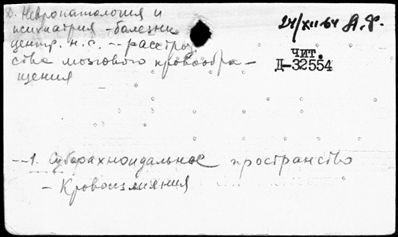 D. Невропатология и
психиатрия - болезни
центр. н. с. -- расстрой
ства мозгового кровообра -
щения
24/XII-64
чит.
Д-32554
--1. Субарахноидальное пространство
- Кровоизлияния